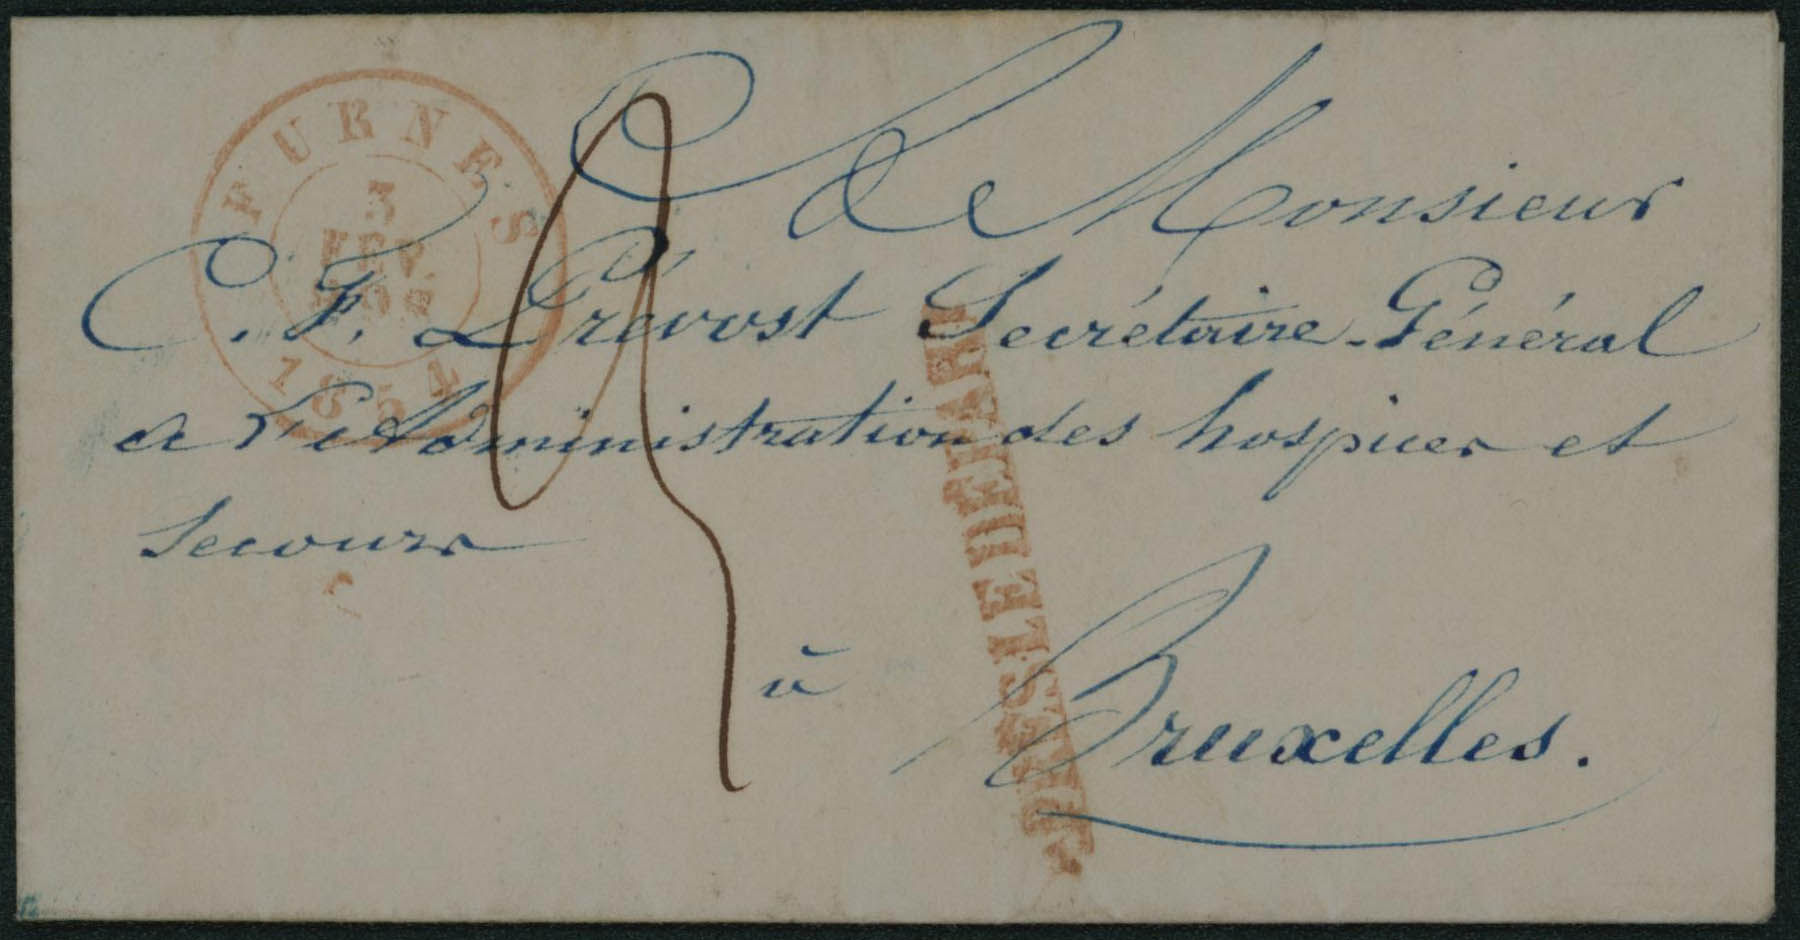 FURNES
3
FEV.
1854
A Monsieur
C. F. Prévost Secrétaire-Général
de l'Administration des hospices et
Secours
à
Bruxelles.
APRES LE DEPART